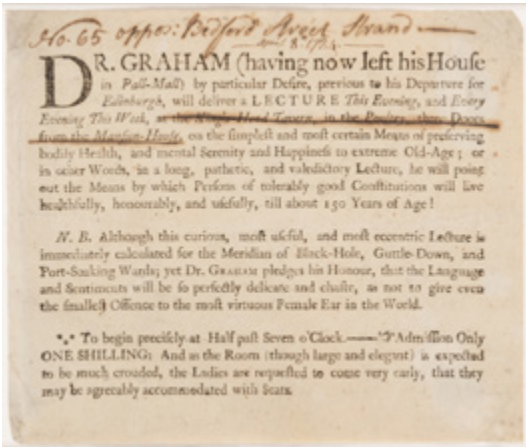 No. 65 oppos: Bedford Street Strand
DR. GRAHAM (having now left his House
in Pall-Mall) by particular Desire, previous to his Departure for
Edinburgh, will deliver a LECTURE This Evening, and Every
Evening This Week, at the King's-Head Tavern, in the Poultry, three Doors
from the Mansion-House, on the simplest and most certain Means of preserving
bodily Health, and mental Serenity and Happiness to extreme Old-Age; or
in other Words, in a long, pathetic, and valedictory Lecture, he will point
out the Means by which Persons of tolerably good Constitutions will live
healthfully, honourably, and usefully, till about 150 Years of Age!
N. B. Although this curious, most useful, and most eccentric Lecture is
immediately calculated for the Meridian of Black-Hole, Guttle-Down, and
Port-Soaking Wards; yet Dr. GRAHAM pledges his Honour, that the Language
and Sentiments will be so perfectly delicate and chaste, as not to give even
the smallest Offence to the most virtuous Female Ear in the World.
*** To begin precisely at Half past Seven o'Clock.—Admission Only
ONE SHILLING: And as the Room (though large and elegant) is expected
to be much crouded, the Ladies are requested to come very early, that they
may be agreeably accommodated with Seats.